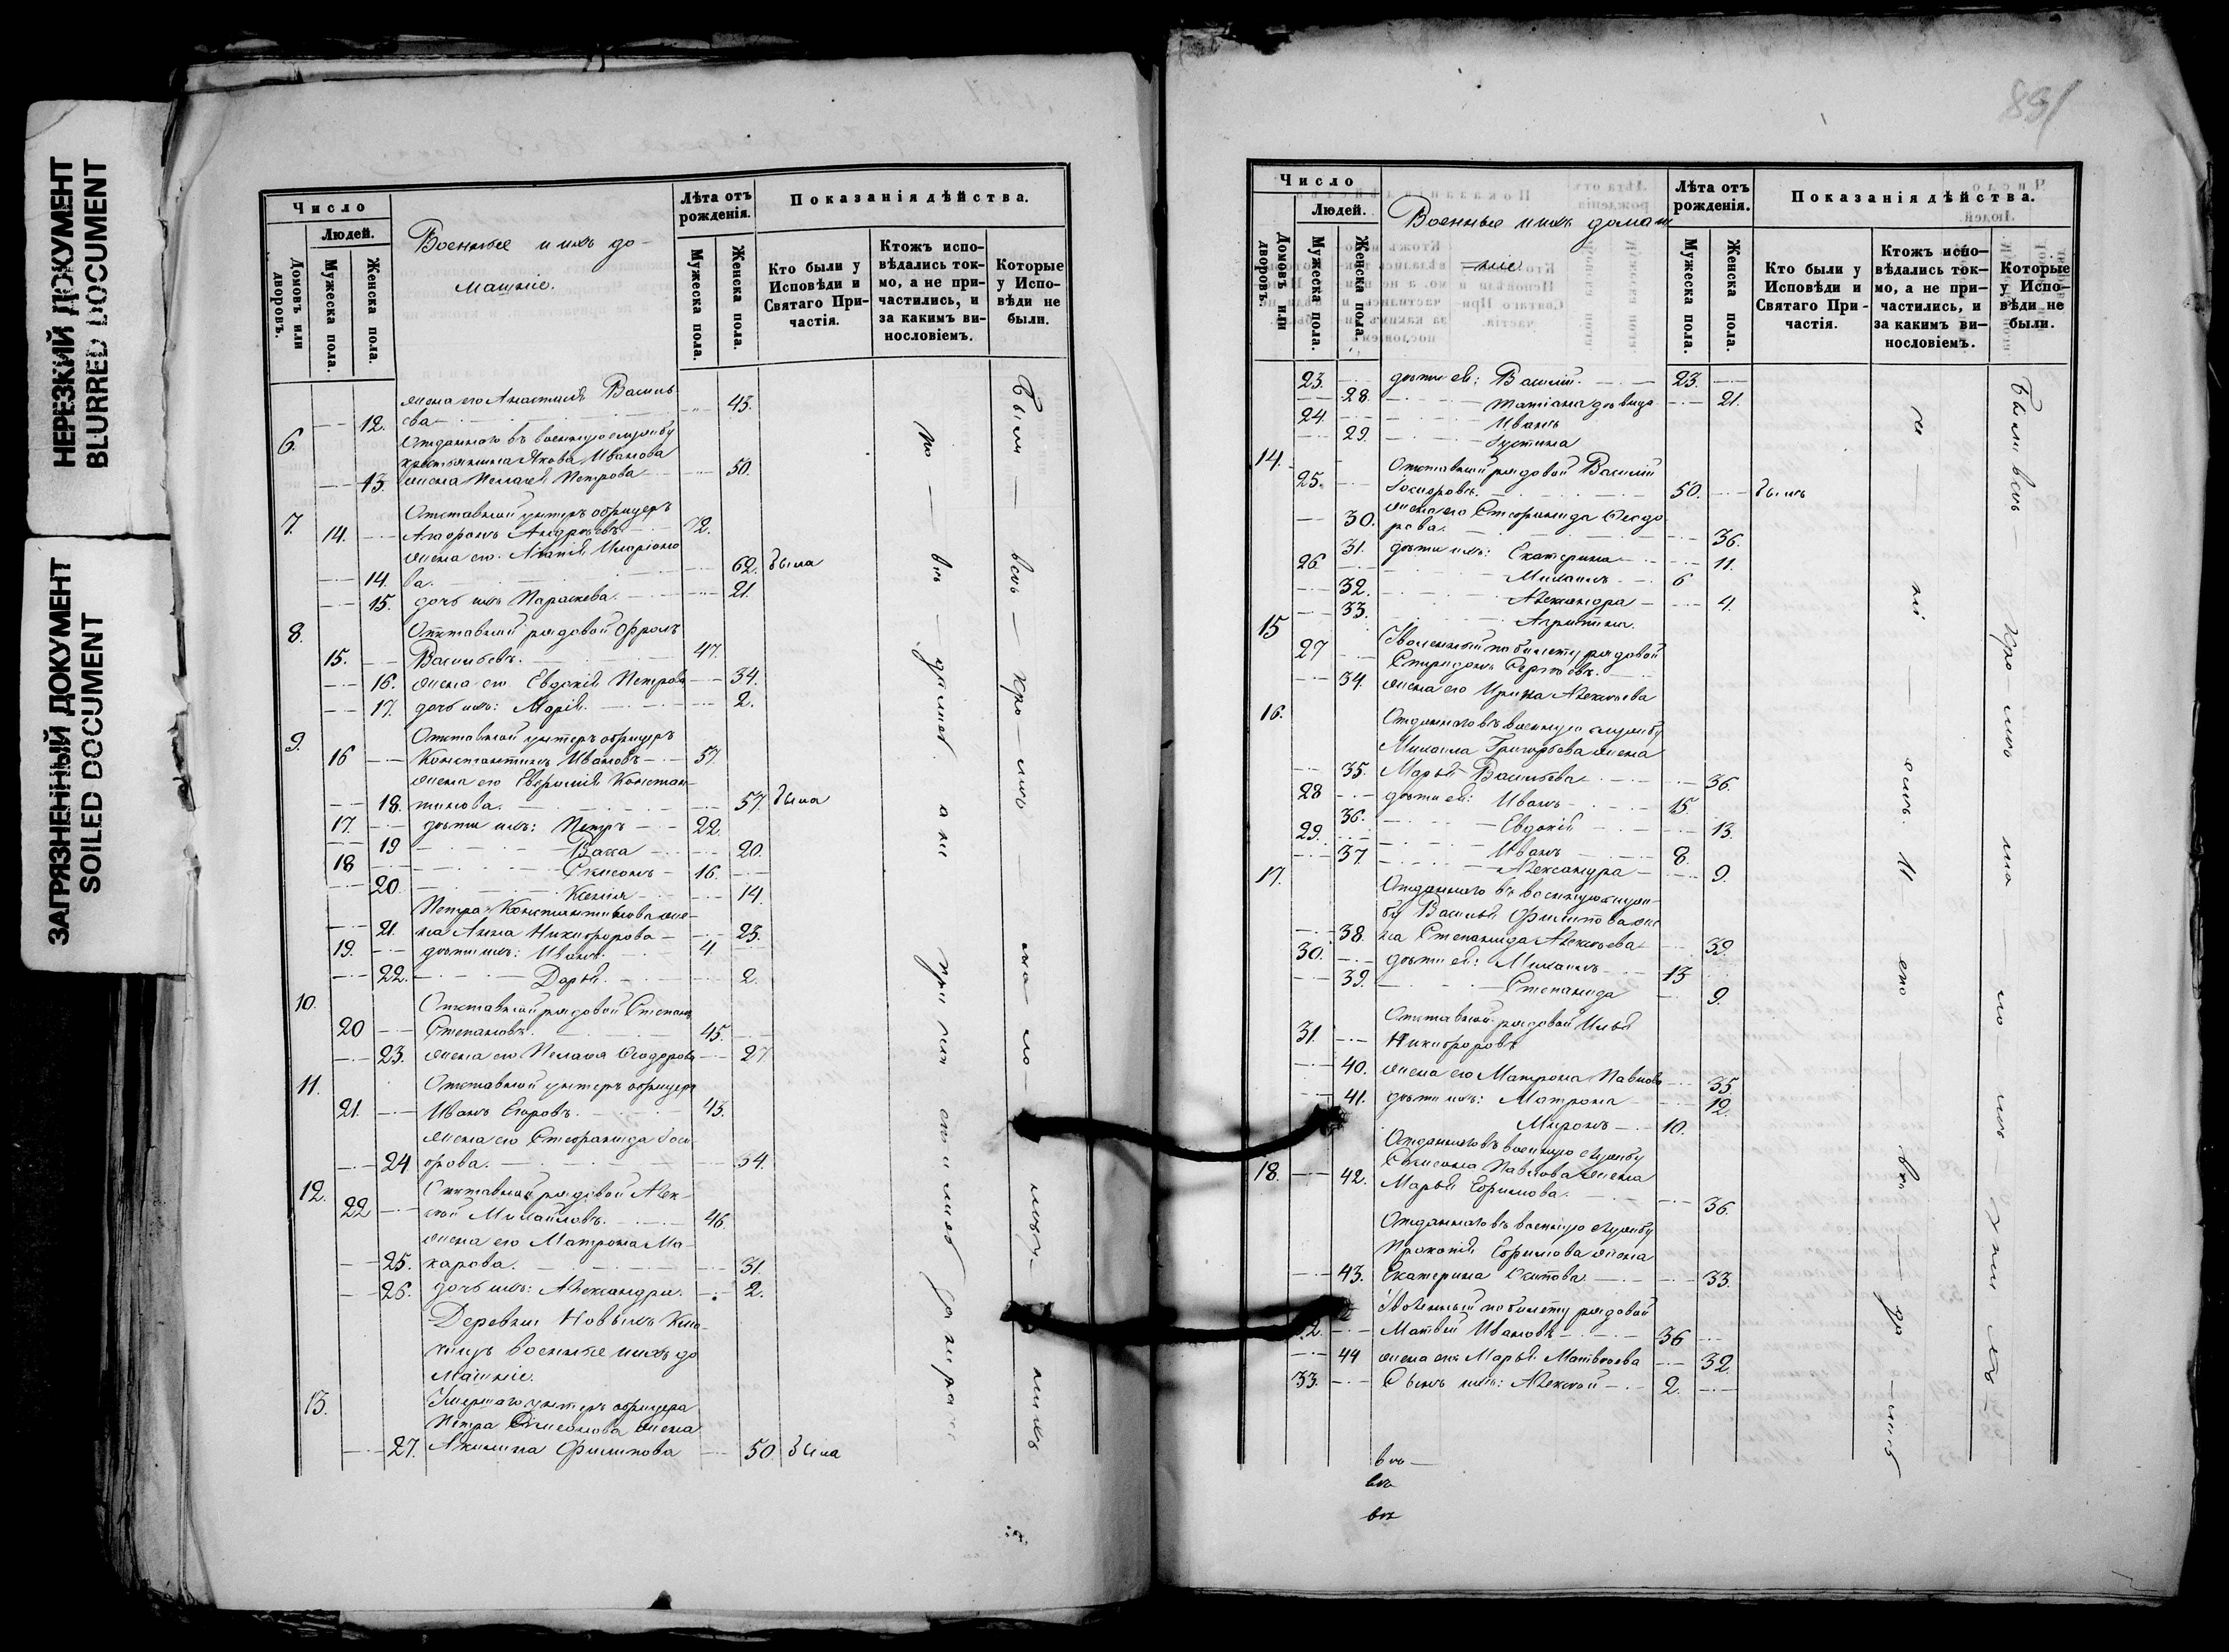 НЕРЕЗКИЙ ДОКУМЕНТ
BLURRED DOCUMENT
ЗАГРЯЗНЕННЫЙ ДОКУМЕНТ
SOILED DOCUMENT
Число
Людей.
Домовъ или дворовъ.
Мужеска пола.
Женска пола.
Военные и ихъ до-
машніе.
Лѣта отъ рожденія.
Мужеска пола.
Женска пола.
Показанія дѣйства.
Кто были у Исповѣди и Святаго При-частія.
Ктожъ испо-вѣдались ток-мо, а не при-частились, и за какимъ ви-нословіемъ.
Которые у Испо-вѣди не были.
жена его Анастасія Василь
12. ева 43.
6. Отданнаго въ военную службу
крестьянина Якова Иванова
13. жена Пелагія Петрова 50.
7. Отставный унтеръ офицеръ
14. Андреевъ 72.
жена его Иларіоно
14. ва. 62. была
15. дочь ихъ Параскева. 21.
8. Отставный рядовой Фролъ
15. Васильевъ. 47.
16. жена его Евдокія Петрова 34.
17. дочь ихъ: Марія. 2.
9. Отставный унтеръ офицеръ
16 Константинъ Ивановъ 57.
жена его Евфимія Констан
18. тинова. 57. была
17. дѣти ихъ: Петръ 22.
19 Васса 20.
18 Симеонъ 16.
20. Ксенія 14.
Петра Константинова же-
21. на Анна Никифорова 23.
19. дѣти ихъ: Иванъ. 4.
22. Дарья. 2.
10. Отставный рядовой Степанъ
20 Степановъ. 45.
23. жена его Пелагія Ѳеодорова 27
11. Отставный унтеръ офицеръ
21. Иванъ Егоровъ. 43.
жена его Стефанида
24 орова. 34.
12. Отставный рядовой Алек-
22 сѣй Михайловъ. 46.
жена его Матрона Ма-
25. карова. 31.
26. дочь ихъ: Александра. 2.
Деревни Новыхъ
военные и ихъ до
машніе.
13. Умершаго унтеръ офицера
Петра Симеонова жена
27. Акилина Филипова 50. была
831
Число
Людей.
Домовъ или дворовъ.
Мужеска пола.
Женска пола.
Военные и ихъ домаш
=ніе.
Лѣта отъ рожденія.
Мужеска пола.
Женска пола.
Показанія дѣйства.
Кто были у Исповѣди и Святаго При-частія.
Ктожъ испо-вѣдались ток-мо, а не при-частились, и за какимъ ви-нословіемъ.
Которые у Испо-вѣди не были.
23. дѣти ея: Василій. 23.
28. Татіана дѣвица 21.
24. Иванъ
29. Іустина
14. Отставный рядовой Василій
25. 50. былъ
жена его Стефанида Ѳеодо
30. рова. 36.
31. дѣти ихъ: Екатерина 11.
26 Михаилъ 6
32. Александра 4.
33.
15 Уволенный по билету рядовой
27 Спиридонъ Сергѣевъ.
34. жена его Ирина Алексѣева
16. Отданнаго въ военную службу
Михаила Григорьева жена
35. Марья Васильева 36.
28 дѣти ея: Иванъ 15.
36. Евдокія 13.
29. Иванъ 8.
37. Александра 9.
17. Отданнаго въ военную служ-
бу Василья Филипова же
38. на Степанида Алексѣева 39.
30. дѣти ея: Михаилъ 13
39. Степанида 9.
Отставный рядовой Илья
31. Никифоровъ
40. жена его Матрона Павлова 35.
41. дѣти ихъ: Матрона 12.
Миронъ 10.
Отданнаго въ военную службу
18. Симеона Павлова жена
42. Марья Ефимова. 36.
Отданнаго въ военную службу
Прокопія Ефимова жена
43. Екатерина 33.
Уволенный по билету рядовой
32. Матвѣй Ивановъ 36
44 жена его Марья Матвѣева 32.
33. Сынъ ихъ: Алексѣй 2.